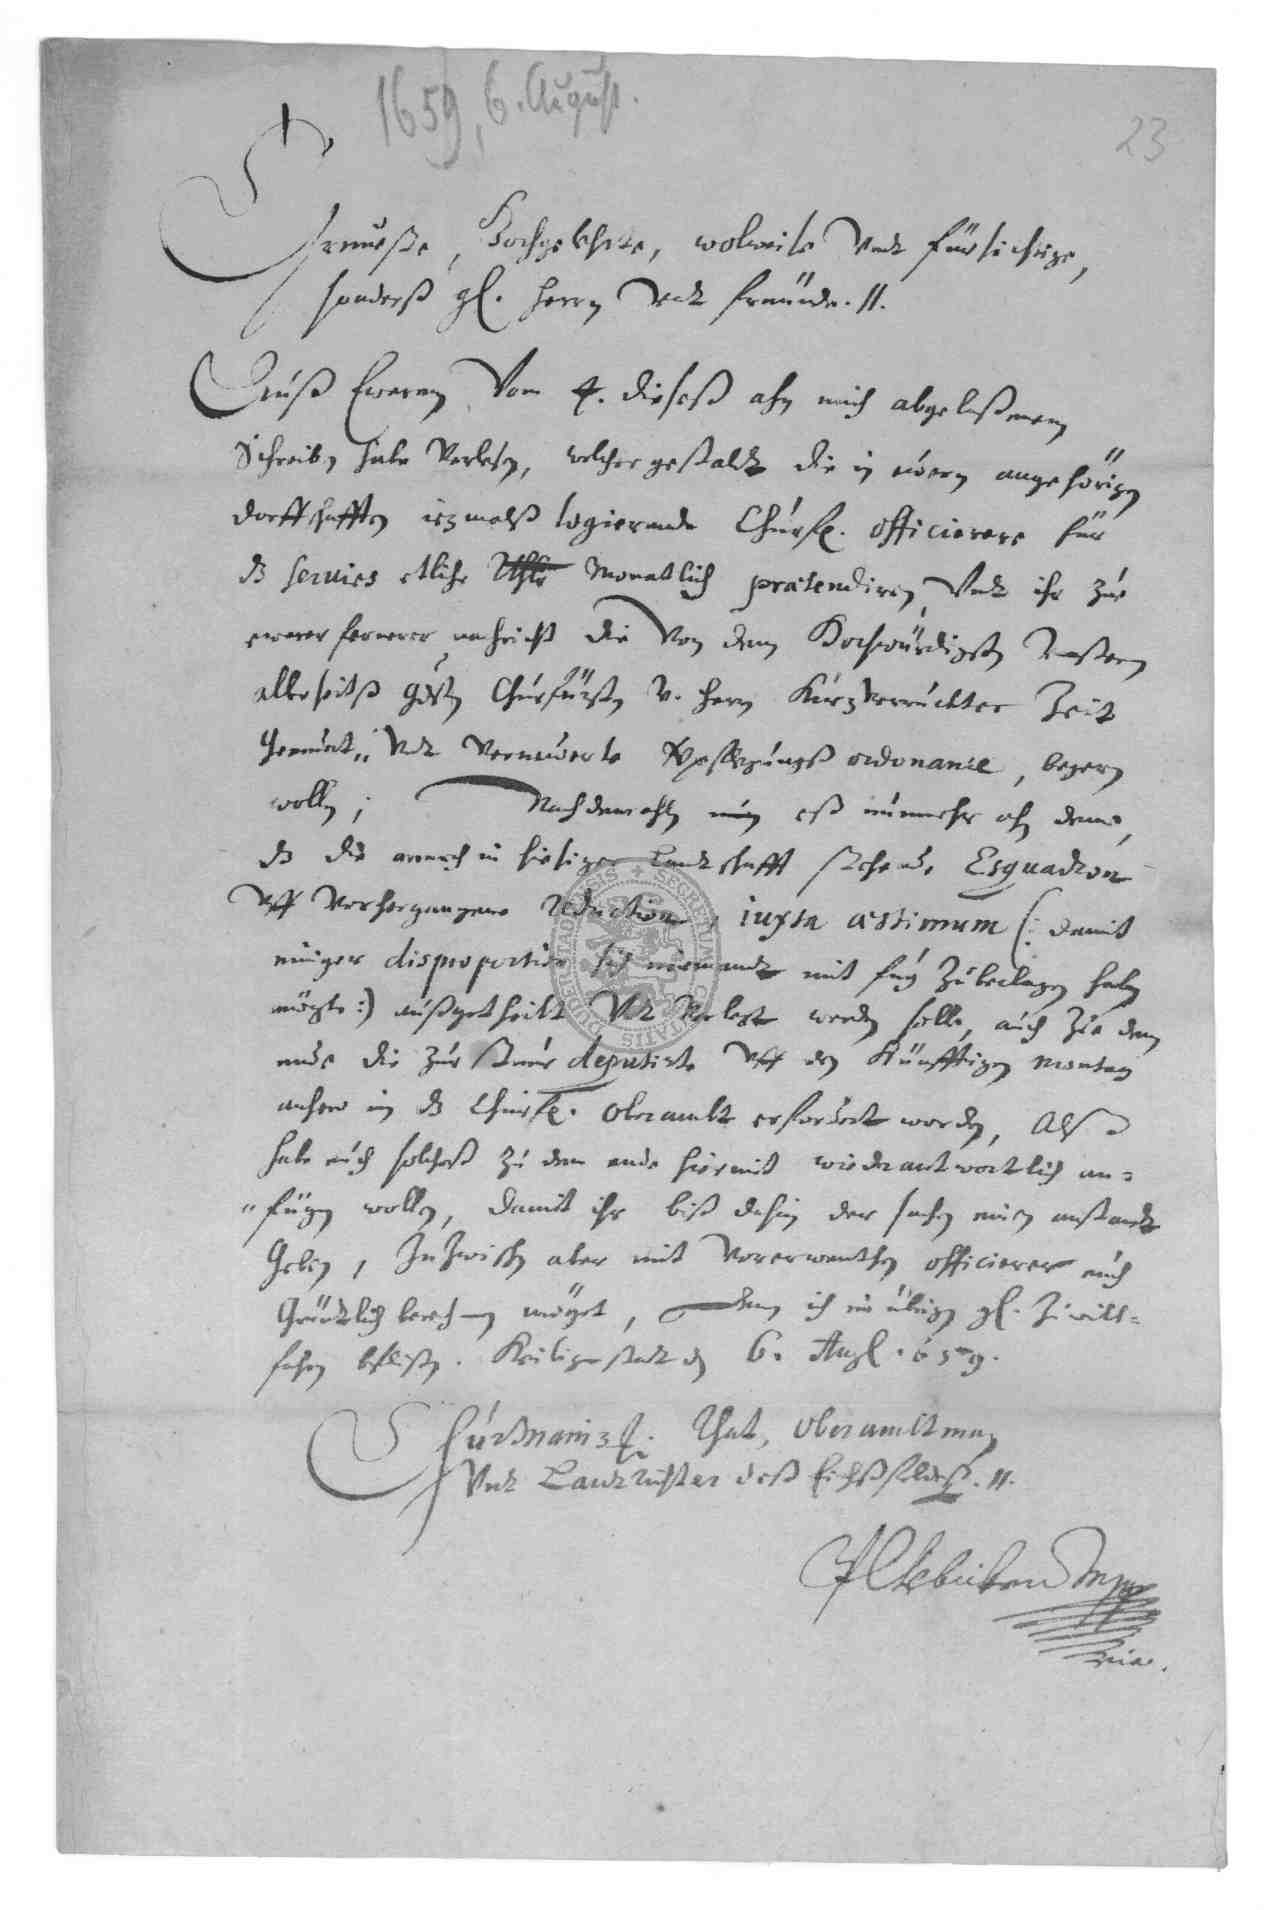 1659, 6. August.
23
Ernueste, Hochgelehrte, wolweise Undt fürsichtige,
sonderß gl. herrn Undt freunde. //.
Auß Eweren Vom 4. dieseß ahn mich abgelaßenem
Schreiben habe Verlesen, welcher gestaldt die in ewern angehörigen
dorffschafften itzmalß logierende Churfl. officierere für
dz servies etliche Rthlr Monattlich praetendiren, Undt ihr zue
ewerer fernerer nachricht die Von dem Hochwürdigsten Unßerm
allerseitß gdsten Churfürsten v. herrn kurzverruckter Zeit
Undt Vernewerte Verpflegungß ordonance, begern
wollen; Nachdemahlen nun eß nunmehr ahn deme,
dz die annoch in hiesiger Landtschafft stehende Esquadron
Uff Vorhergangene reduction, iuxta aestimum (: damit
einiger disproportion sich niemandt mit fug Zubeclagen haben
mögte :) außgetheilt Undt Verlegt werden solle, auch Zue dem
ende die zur steur deputirte Uff den künfftigen Montag
anhero in dz Churfl. Oberambt erfordert worden, Alß
habe euch solcheß zu dem ende hiermit wiederantwortlich an=
"fügen wollen, damit ihr biß dahin der sachen einen anstandt
Geben, Inzwischen aber mit Vorerwenthen officierer euch
Gründtlich berechnen möget, dem ich im übrigen gl. Zu will=
fahren beflißen. Heiligenstadt den 6. Augl. 1659.
Churmainzl. Rhat, Oberambtman
Undt Landtrichter deß Eichßfeldeß. //.
mppria.
SECRETUM CIVITATIS DUDERSTADENSIS